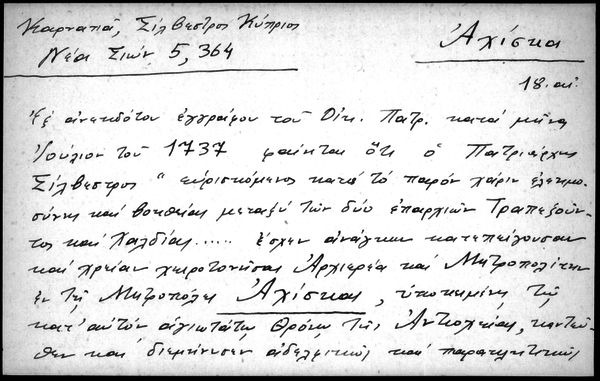 Καρναπᾶ, Σίλβεστρος Κύπριος
Νέα Σιών 5, 364
Ἀχίσκα
18. αἰ.
Ἐξ ἀνεκδότου ἐγγράφου τοῦ Οἰκ. Πατρ. κατά μῆνα
Ἰούλιον τοῦ 1737 φαίνεται ὅτι ὁ Πατριάρχης
Σίλβεστρος " εὑρισκόμενος κατά τό παρόν χάριν ἐλεημο-
σύνης καί βοηθείας μεταξύ τῶν δύο ἐπαρχιῶν Τραπεζοῦν-
τος καί Χαλδίας..... ἔσχεν ἀνάγκην κατεπείγουσαν
καί χρείαν χειροτονῆσαι Ἀρχιερέα καί Μητροπολίτην
ἐν τῇ Μητροπόλει Ἀχίσκας, ὑποκειμένῃ τῷ
κατ' αὐτόν ἁγιωτάτῳ Θρόνῳ τῆς Ἀντιοχείας, κἀντεῦ-
θεν καί διεμήνυσεν ἀδελφικῶς καί παρακλητικῶς